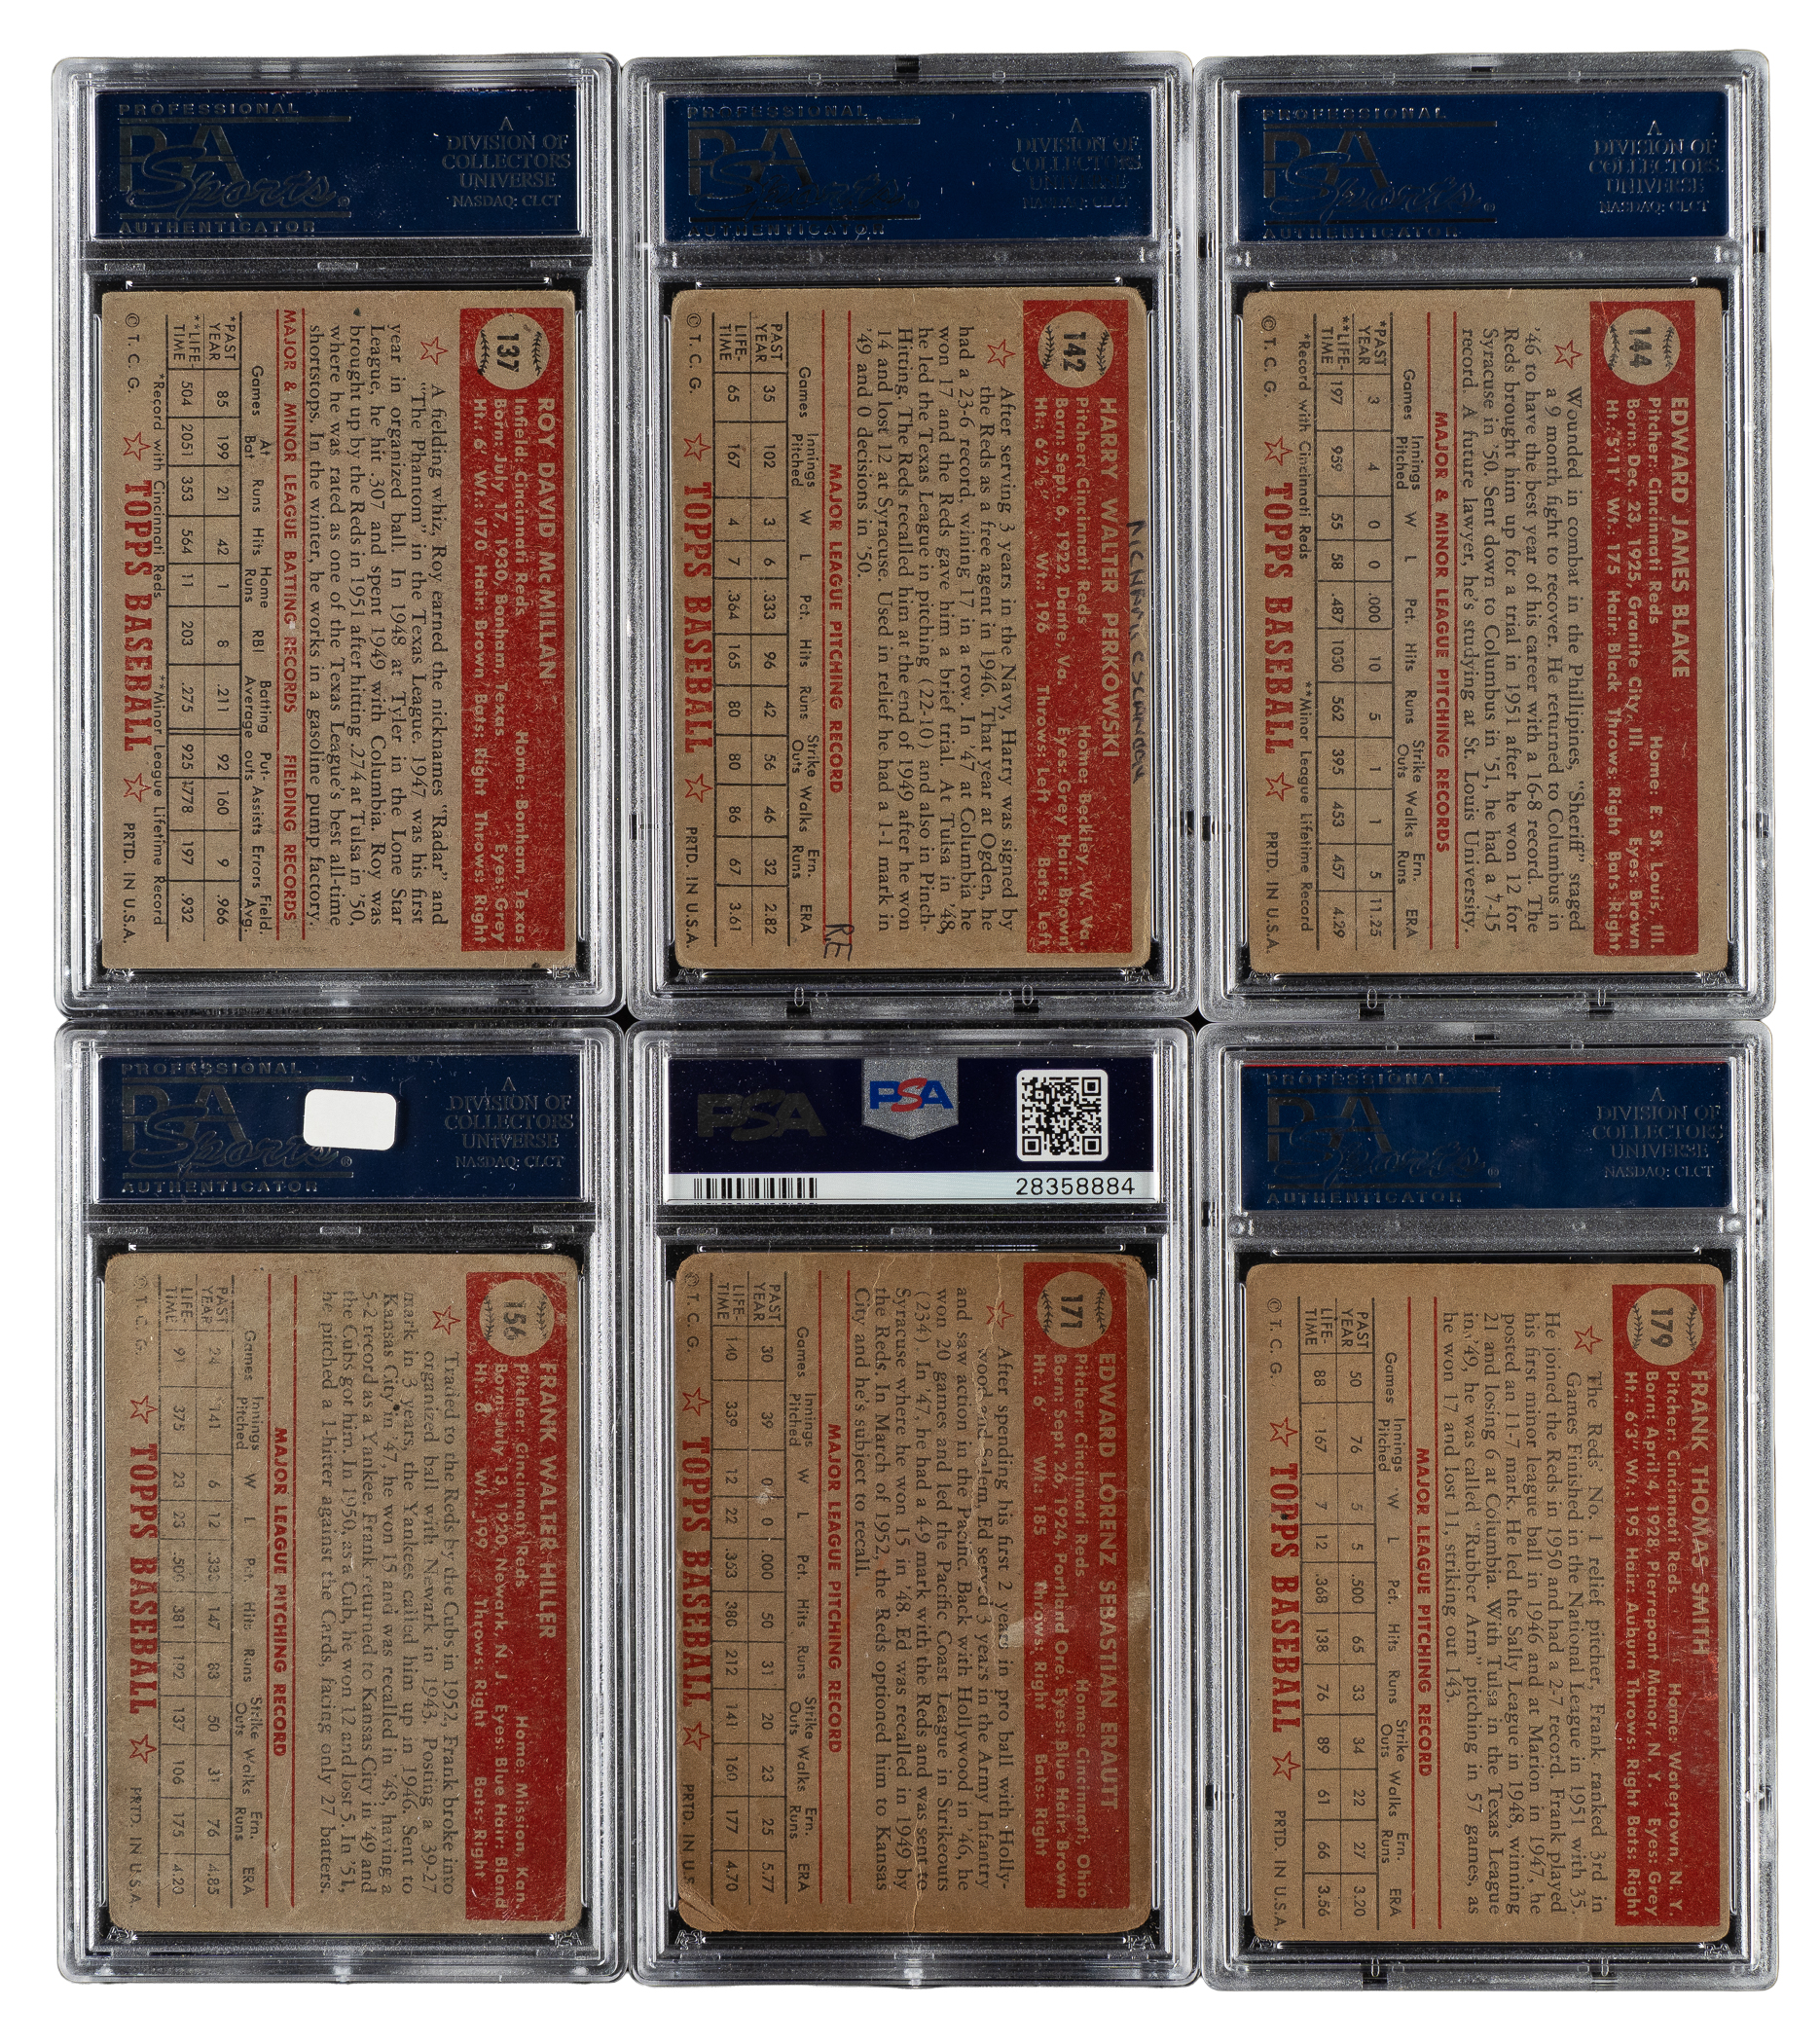 PROFESSIONAL
PSA
Sports®
AUTHENTICATOR
A
DIVISION OF
COLLECTORS
UNIVERSE
NASDAQ: CLCT
137
ROY DAVID McMILLAN
Infield: Cincinnati Reds Home: Bonham, Texas
Born: July 17, 1930, Bonham, Texas Eyes: Grey
Ht.: 6' Wt.: 170 Hair: Brown Bats: Right Throws: Right
A fielding whiz, Roy earned the nicknames "Radar" and
"The Phantom" in the Texas League. 1947 was his first
year in organized ball. In 1948 at Tyler in the Lone Star
League, he hit .307 and spent 1949 with Columbia. Roy was
brought up by the Reds in 1951 after hitting .274 at Tulsa in '50,
where he was rated as one of the Texas League's best all-time
shortstops. In the winter, he works in a gasoline pump factory.
MAJOR & MINOR LEAGUE BATTING RECORDS FIELDING RECORDS
Games At Bat. Runs Hits Home Runs RBI Batting Average Put-outs Assists Errors Field. Avg.
*PAST YEAR 85 199 21 42 1 8 .211 92 160 9 .966
**LIFE-TIME 504 2051 353 564 11 203 .275 925 1778 197 .932
*Record with Cincinnati Reds **Minor League Lifetime Record
© T. C. G. TOPPS BASEBALL PRTD. IN U.S.A.
PROFESSIONAL
PSA
Sports
AUTHENTICATOR
A
DIVISION OF
COLLECTORS
UNIVERSE
NASDAQ: CLCT
142
HARRY WALTER PERKOWSKI
Pitcher: Cincinnati Reds Home: Beckley, W. Va.
Born: Sept. 6, 1922, Dante, Va. Eyes: Grey Hair: Brown
Ht.: 6'2½" Wt.: 196 Throws: Left Bats: Left
After serving 3 years in the Navy, Harry was signed by
the Reds as a free agent in 1946. That year at Ogden, he
had a 23-6 record, wining 17 in a row. In '47 at Columbia he
won 17 and the Reds gave him a brief trial. At Tulsa in '48,
he led the Texas League in pitching (22-10) and also in Pinch-
Hitting. The Reds recalled him at the end of 1949 after he won
14 and lost 12 at Syracuse. Used in relief he had a 1-1 mark in
'49 and 0 decisions in '50.
RE
MAJOR LEAGUE PITCHING RECORD
Games Innings Pitched W L Pct. Hits Runs Strike Outs Walks Ern. Runs ERA
PAST YEAR 35 102 3 6 .333 96 42 56 46 32 2.82
LIFE-TIME 65 167 4 7 .364 165 80 80 86 67 3.61
© T. C. G. TOPPS BASEBALL PRTD. IN U.S.A.
PROFESSIONAL
PSA
Sports®
AUTHENTICATOR
A
DIVISION OF
COLLECTORS
UNIVERSE
NASDAQ: CLCT
144
EDWARD JAMES BLAKE
Pitcher: Cincinnati Reds Home: E. St. Louis, Ill.
Born: Dec. 23, 1925, Granite City, Ill. Eyes: Brown
Ht.: 5'11" Wt.: 175 Hair: Black Throws: Right Bats: Right
Wounded in combat in the Phillipines, "Sheriff" staged
a 9 month fight to recover. He returned to Columbus in
'46 to have the best year of his career with a 16-8 record. The
Reds brought him up for a trial in 1951 after he won 12 for
Syracuse in '50. Sent down to Columbus in '51, he had a 7-15
record. A future lawyer, he's studying at St. Louis University.
MAJOR & MINOR LEAGUE PITCHING RECORDS
Games Innings Pitched W L Pct. Hits Runs Strike Outs Walks Ern. Runs ERA
*PAST YEAR 3 4 0 0 .000 10 5 1 1 5 11.25
**LIFE-TIME 197 959 55 58 .487 1050 562 395 453 457 4.29
*Record with Cincinnati Reds **Minor League Lifetime Record
© T. C. G. TOPPS BASEBALL PRTD. IN U.S.A.
PROFESSIONAL
PSA
Sports®
AUTHENTICATOR
A
DIVISION OF
COLLECTORS
UNIVERSE
NASDAQ: CLCT
156
FRANK WALTER HILLER
Pitcher: Cincinnati Reds Home: Mission, Kan.
Born: July 13, 1920, Newark, N. J. Eyes: Blue Hair: Blond
Ht.: 6' Wt.: 199 Throws: Right Bats: Right
Traded to the Reds by the Cubs in 1952, Frank broke into
organized ball with Newark in 1943. Posting a 39-27
mark in 3 years, the Yankees called him up in 1946. Sent to
Kansas City in '47, he won 15 and was recalled in '48, having a
5-2 record as a Yankee. Frank returned to Kansas City in '49 and
the Cubs got him. In 1950, as a Cub, he won 12 and lost 5. In '51,
he pitched a 1-hitter against the Cards, facing only 27 batters.
MAJOR LEAGUE PITCHING RECORD
Games Innings Pitched W L Pct. Hits Runs Strike Outs Walks Ern. Runs ERA
PAST YEAR 24 141 6 12 .333 147 83 50 31 76 4.85
LIFE-TIME 91 375 23 23 .500 381 192 137 106 175 4.20
© T. C. G. TOPPS BASEBALL PRTD. IN U.S.A.
PSA
PSA
28358884
171
EDWARD LORENZ SEBASTIAN ERAUTT
Pitcher: Cincinnati Reds Home: Cincinnati, Ohio
Born: Sept. 26, 1924, Portland Ore. Eyes: Blue Hair: Brown
Ht.: 6' Wt.: 185 Throws: Right Bats: Right
After spending his first 2 years in pro ball with Holly-
wood and Salem, Ed served 3 years in the Army Infantry
and saw action in the Pacific. Back with Hollywood in '46, he
won 20 games and led the Pacific Coast League in Strikeouts
(234). In '47, he had a 4-9 mark with the Reds and was sent to
Syracuse where he won 15 in '48. Ed was recalled in 1949 by
the Reds. In March of 1952, the Reds optioned him to Kansas
City and he's subject to recall.
MAJOR LEAGUE PITCHING RECORD
Games Innings Pitched W L Pct. Hits Runs Strike Outs Walks Ern. Runs ERA
PAST YEAR 30 39 0 0 .000 50 31 20 23 25 5.77
LIFE-TIME 140 339 12 22 .353 380 212 141 160 177 4.70
© T. C. G. TOPPS BASEBALL PRTD. IN U.S.
PROFESSIONAL
PSA
Sports®
AUTHENTICATOR
A
DIVISION OF
COLLECTORS
UNIVERSE
NASDAQ: CLCT
179
FRANK THOMAS SMITH
Pitcher: Cincinnati Reds Home: Watertown, N. Y.
Born: April 4, 1928, Pierrepont Manor, N. Y. Eyes: Grey
Ht.: 6'3" Wt.: 195 Hair: Auburn Throws: Right Bats: Right
The Reds' No. 1 relief pitcher, Frank ranked 3rd in
Games Finished in the National League in 1951 with 35.
He joined the Reds in 1950 and had a 2-7 record. Frank played
his first minor league ball in 1946 and at Marion in 1947, he
posted an 11-7 mark. He led the Sally League in 1948, winning
21 and losing 6 at Columbia. With Tulsa in the Texas League
in '49, he was called "Rubber Arm" pitching in 57 games, as
he won 17 and lost 11, striking out 143.
MAJOR LEAGUE PITCHING RECORD
Games Innings Pitched W L Pct. Hits Runs Strike Outs Walks Ern. Runs ERA
PAST YEAR 50 76 5 5 .500 65 33 34 22 27 3.20
LIFE-TIME 88 167 7 12 .368 138 76 89 61 66 3.56
© T. C. G. TOPPS BASEBALL PRTD. IN U.S.A.